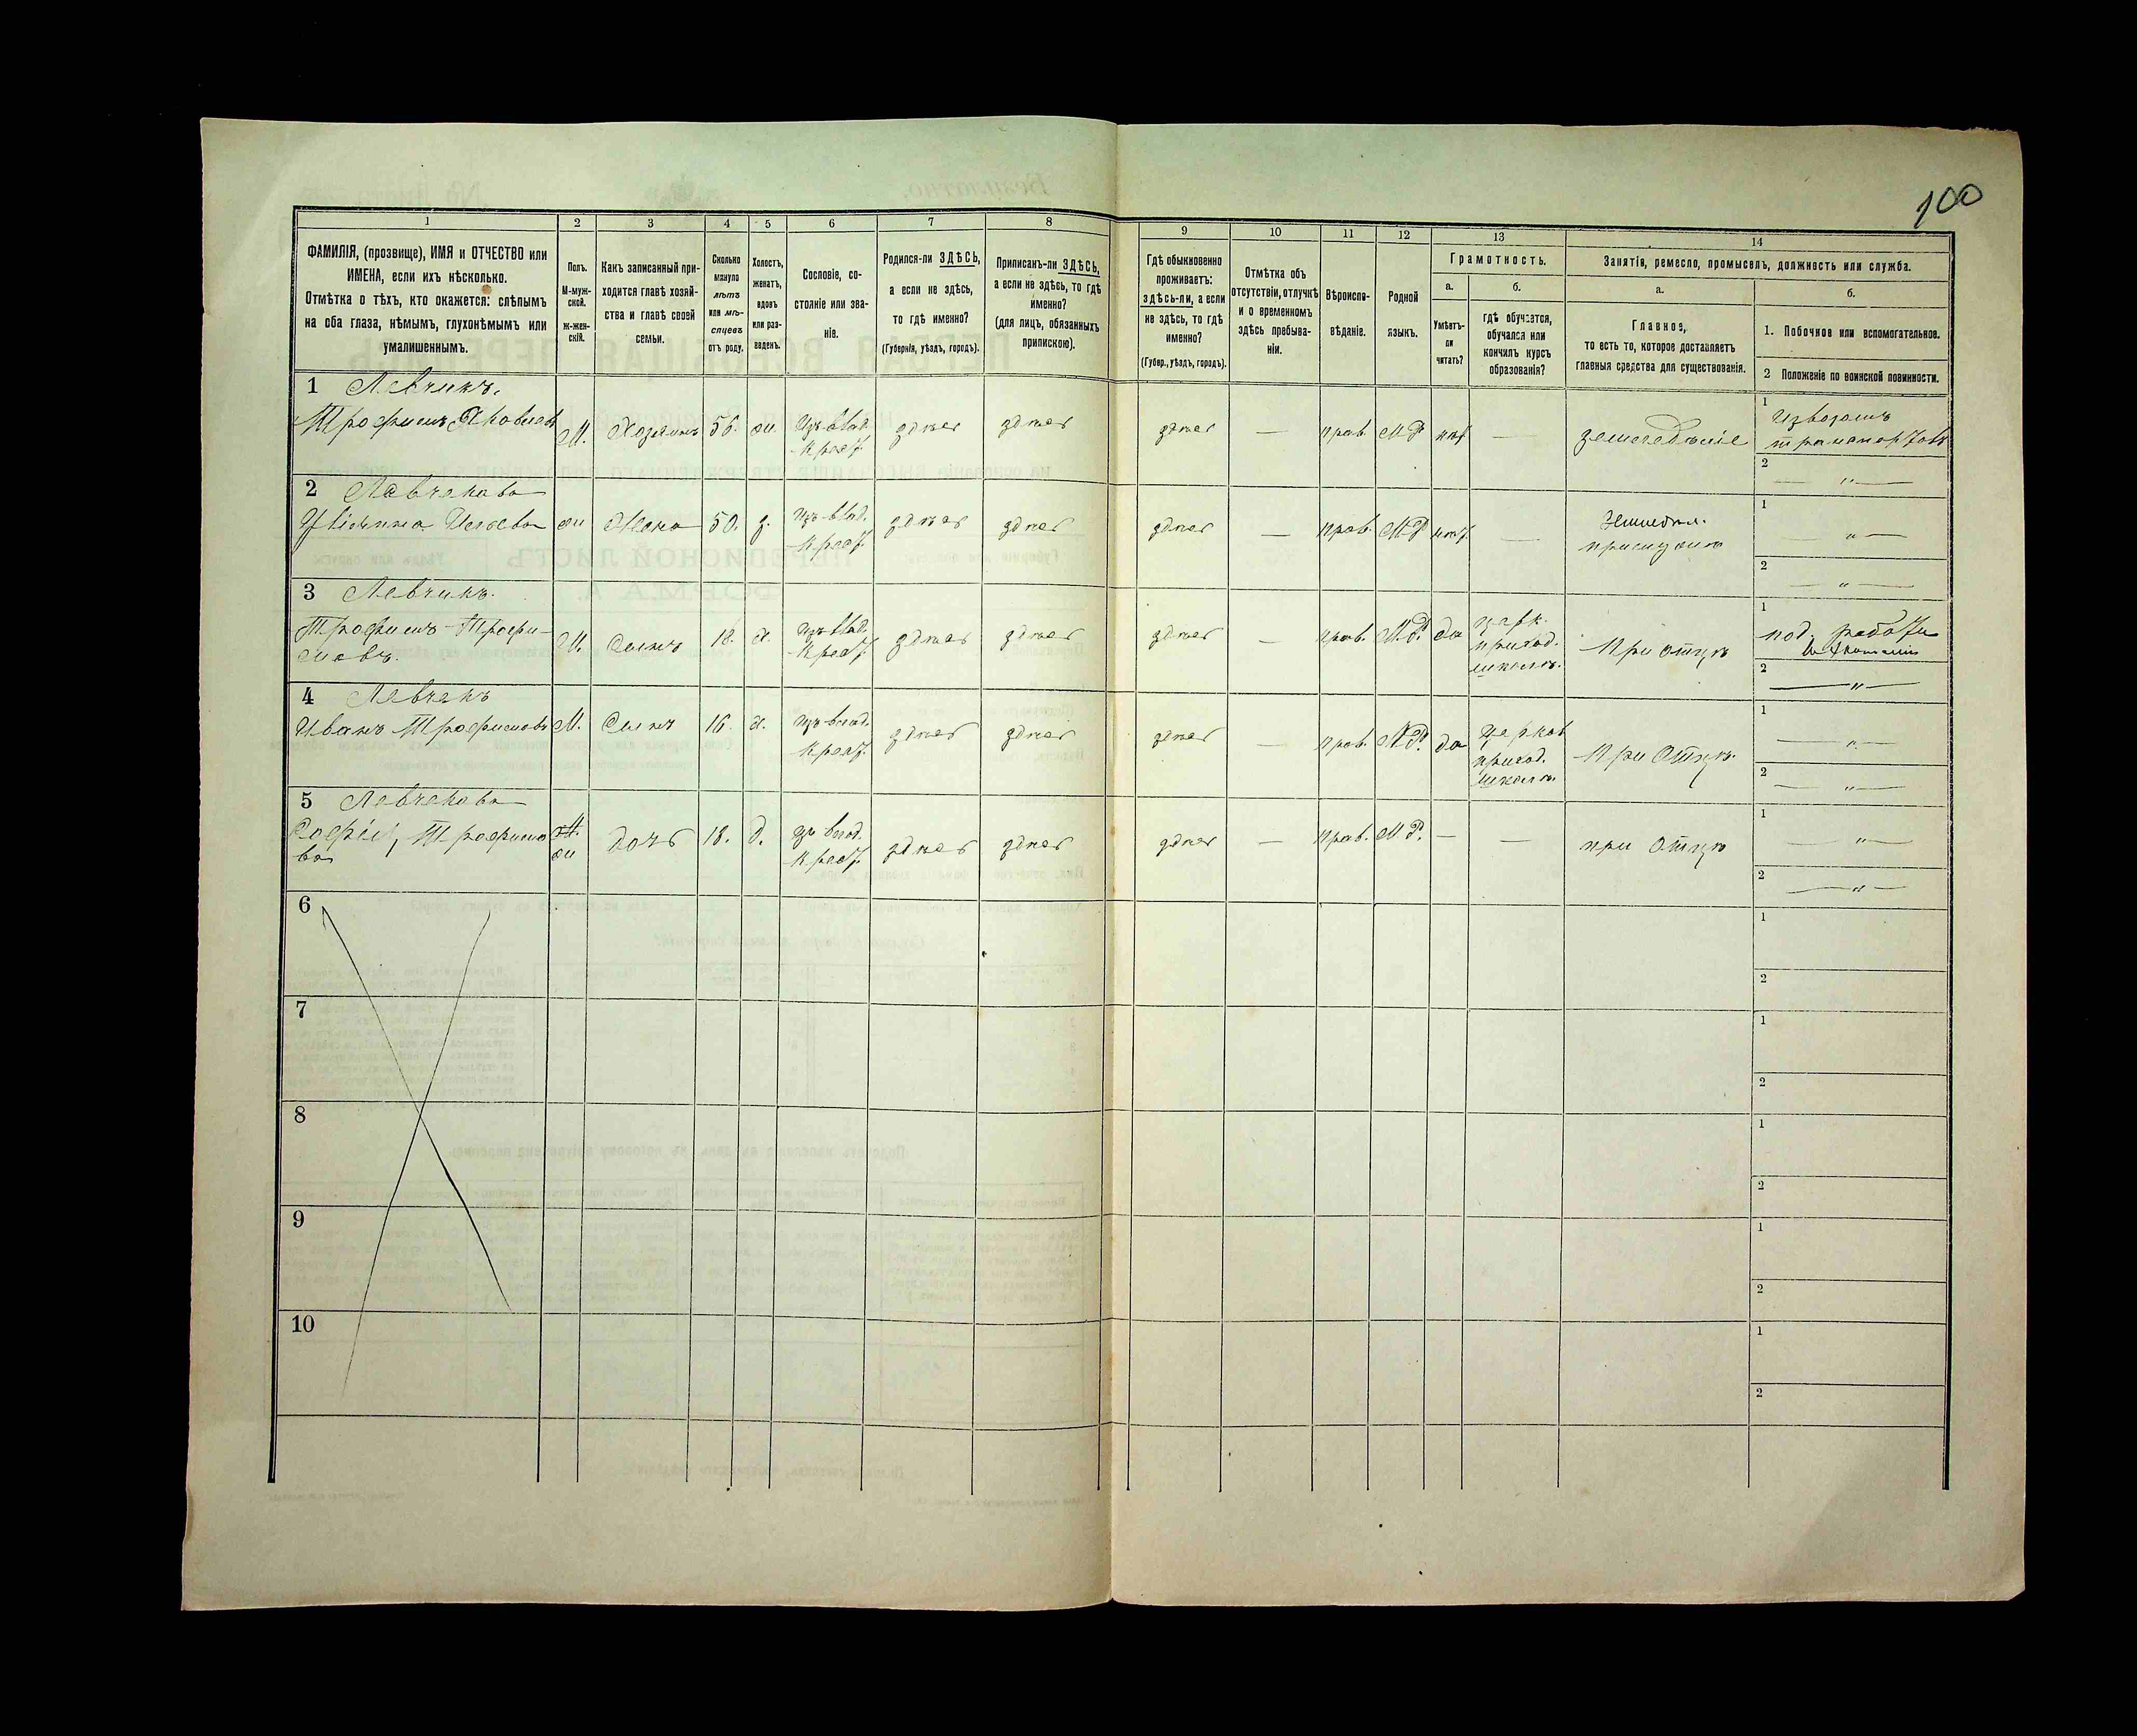 100
1
2
3
4
5
6
7
8
9
10
11
12
13
14
ФАМИЛІЯ, (прозвище), ИМЯ и ОТЧЕСТВО или
ИМЕНА, если ихъ нѣсколько.
Отмѣтка о тѣхъ, кто окажется: слѣпымъ
на оба глаза, нѣмымъ, глухонѣмымъ или
умалишеннымъ.
Полъ.
М-муж-
ской.
ж-жен-
скій.
Какъ записанный при-
ходится главѣ хозяй-
ства и главѣ своей
семьи.
Сколько
минуло
лѣтъ
или мѣ-
сяцевъ
отъ роду.
Холостъ,
женатъ,
вдовъ
или раз-
веденъ.
Сословіе, со-
стояніе или зва-
ніе.
Родился-ли ЗДѢСЬ,
а если не здѣсь,
то гдѣ именно?
(Губернія, уѣздъ, городъ).
Приписанъ-ли ЗДѢСЬ,
а если не здѣсь, то гдѣ
именно?
(для лицъ, обязанныхъ
припискою).
Гдѣ обыкновенно
проживаетъ:
здѣсь-ли, а если
не здѣсь, то гдѣ
именно?
(Губер., уѣздъ, городъ).
Отмѣтка объ
отсутствіи, отлучкѣ
и о временномъ
здѣсь пребыва-
ніи.
Вѣроиспо-
вѣданіе.
Родной
языкъ.
Грамотность.
а.
Умѣетъ-
ли
читать?
б.
гдѣ обучается,
обучался или
кончилъ курсъ
образованія?
Занятія, ремесло, промыселъ, должность или служба.
а.
Главное,
то есть то, которое доставляетъ
главныя средства для существованія.
б.
1. Побочное или вспомогательное.
2 Положеніе по воинской повинности.
1 Левчикъ.
Трофимъ Яковлев
М. Хозяинъ 56. ж. Изъ влад. крест. здѣсь здѣсь здѣсь — прав. М.Р. нѣт — земледѣліе
1 Извозомъ
транспортовъ
2 — " —
2 Левченкова
Ильева жи Жена 50. з. Изъ влад. крест. здѣсь здѣсь здѣсь — прав. М.Р. нѣт. —
1 — " —
2 — " —
3 Левчикъ.
Трофимъ Трофи-
мовъ.
М. Сынъ 18. х. Изъ влад. крест. здѣсь здѣсь здѣсь — прав. М.Р. да церк. приход. школѣ. При отцѣ
1 под. работы
2 — " —
4 Левченъ
Иванъ Трофимовъ М. Сынъ 16. х. Изъ влад. крест. здѣсь здѣсь здѣсь — прав. М.Р. да Церков приход. школѣ При Отцѣ.
1 — " —
2 — " —
5 Левченкова
Софія, Трофимо
ва
жи дочь 18. д. Изъ влад. крест. здѣсь здѣсь здѣсь — прав. М.Р. — — при Отцѣ
1 — " —
2 — " —
6
1
2
7
1
2
8
1
2
9
1
2
10
1
2